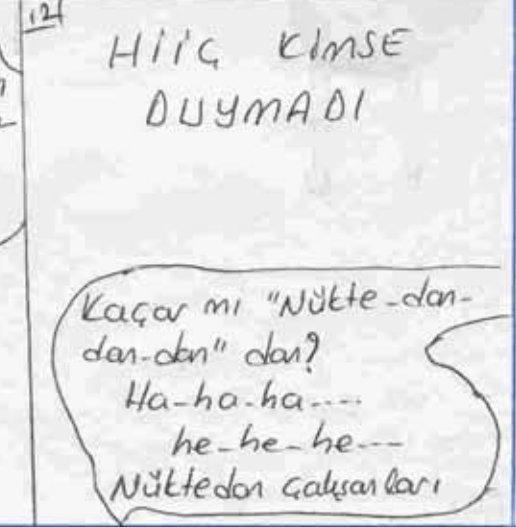 12
HİİÇ KİMSE
DUYMADI
Kaçar mı "Nükte-dan-
dan-dan" dan?
Ha-ha-ha----
he-he-he---
Nüktedan Çalışanları